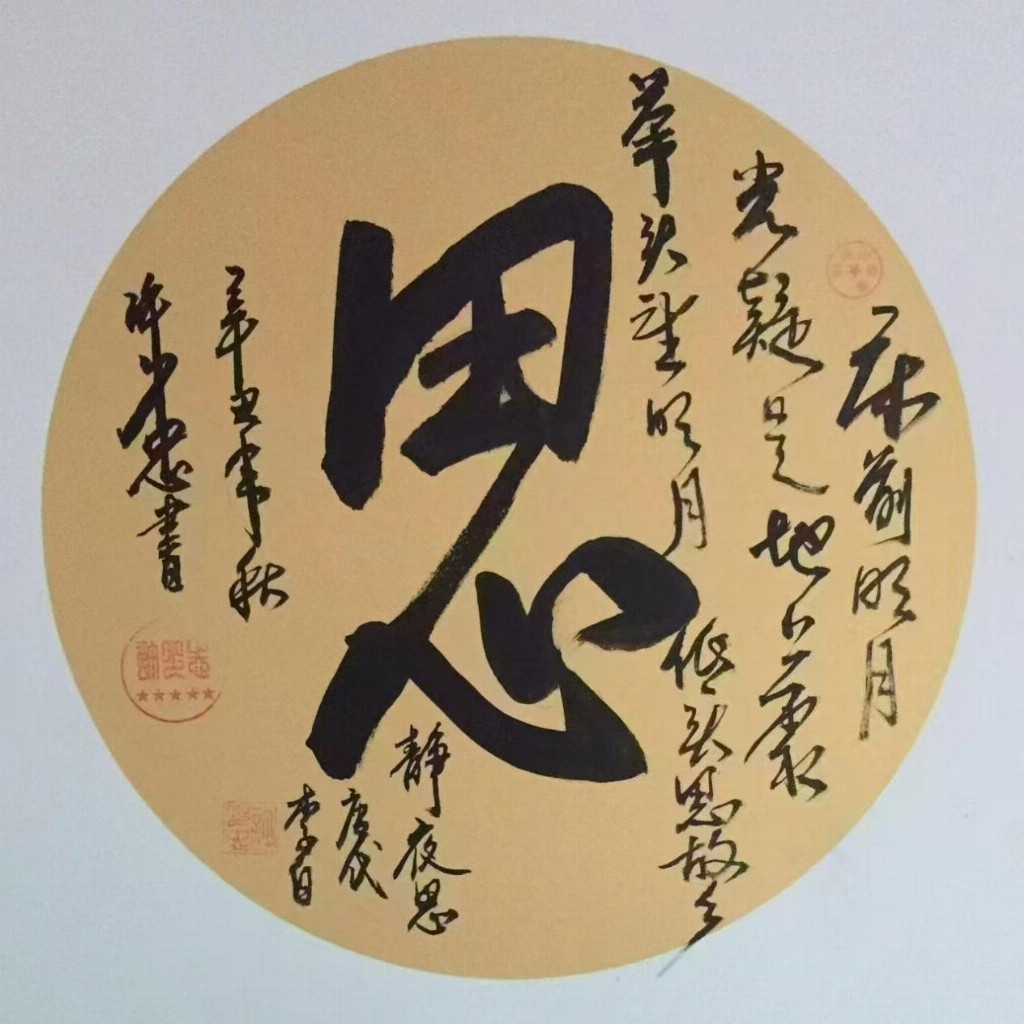 床前明月
光疑是地上霜
举头望明月
低头思故乡
思
静夜思
唐代
李白
辛丑年秋
许忠書